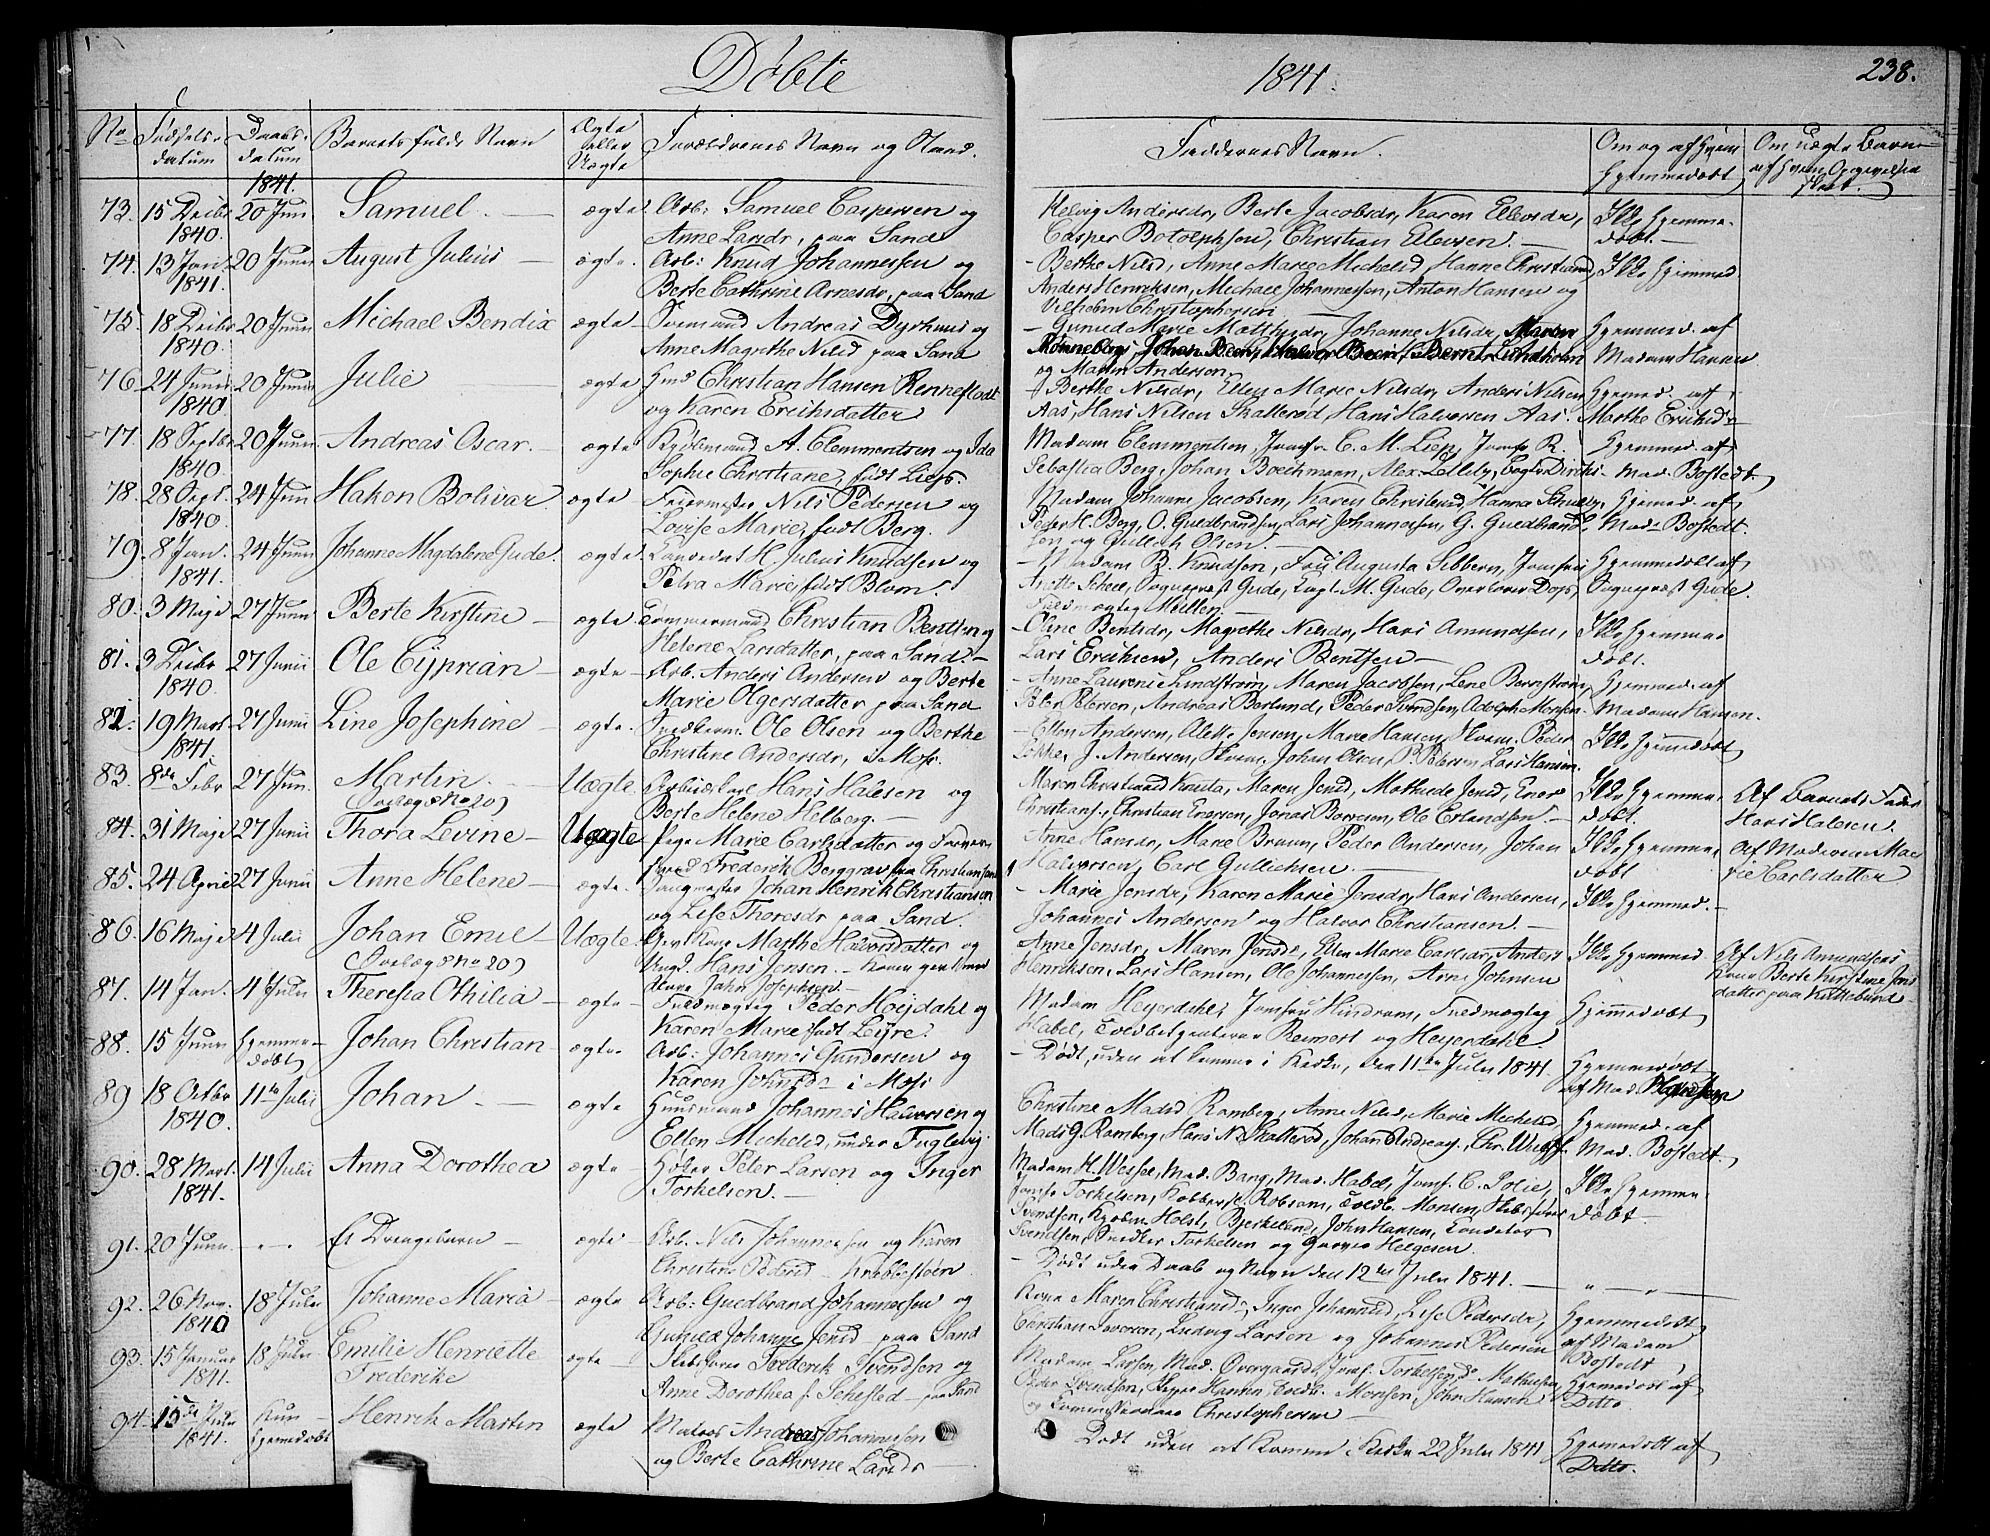 Døbte
1841.
238.
No
Fødsels-datum
Daabs-datum
Barnets fulde Navn
Ægte eller Uægte
Forældrenes Navn og Stand.
Faddernes Navn.
Om og af hvem hjemmedøbt
Om uægte Barn af hvem Opgivelsen skeet.
1841.
73. 15 Decbr 1840. 20 Juni Samuel. — ægte. Arb: Samuel Caspersen og
Anne Larsdr, paa Sand
Helvig Andersdr, Berte Jacobsdr, Karen Ellevsdr,
Casper Botolphsen, Christian Ellevsen. —
Ikke hjemme-
døbt. —
74. 13 Jan 1841. 20 Juni August Julius — ægte. Arb: Knud Johannessen og
Berte Cathrine Arnesdr, paa Sand
Berthe Nilsd, Anne Marie Michelsd, Hanne Christiansd,
Anders Henriksen, Michael Johannessen, Anton Hansen og
Vilhelm Christophersen
Ikke hjemmed.
75. 18 Decbr 1840. 20 Juni Michael Bendix ægte Andreas Dyrhuus og
Anne Magrethe Nilsd paa Sand
Gunild Marie Matthisdr, Johanne Nilsdr, Maren
og Martin Andersen.
Hjemmed. af
Madam Hansen
76. 24 Juni 1840 20 Juni Julie ægte Christian Hansen Rennestadt
og Karen Eriksdatter
Berthe Nilsdr, Ellen Marie Nilsdr, Anders Nilsen
Aas, Hans Nilsen Skallerød, Hans Halversen Aas.
Hjemmed. af
Marthe Eriksd
77. 18 Septbr 1840. 20 Juni Andreas Oscar. ægte Kjøbmand A. Clemmentsen og Ida
Sophie Christiane, født Lieps.
Madam Clemmentsen, Jomfr. C. M. Liep, Jomfr R.
Sebastia Berg, Johan Bockmann, Alex. Lelleby,
Hjemmed. af
Mad. Bostedt.
78. 28 Sept. 1840. 24 Juni Hakon Bolivar. ægte Nils Pedersen og
Lovise Marie, født Berg.
Madam Johanne Jacobsen, Karen Christensd, Hanna
Peder H. Berg, O. Guldbrandsen, Lars Johannesen, G. Guldbrand-
sen og Gullik Olsen. —
Hjemed. af
Mad. Bostedt.
79. 8 Jan. 1841. 24 Juni Johanne Magdalene Gude. ægte H. Julius Knudsen og
Petra Marie, født Blom.
Madam B. Knudsen, Frue Augusta Sibbern, Jomfru
Anette Scheel, Sognepræst Gude, Capt. M. Gude, Overlærer Dops,
Fuldmægtig Müller. —
Hjemmedøbt af
Sognepræst Gude.
80. 3 Maji 27 Juni Berte Kirstine — ægte. Tømmermand Christian Bentsen og
Helene Larsdatter, paa Sand. —
Oline Bentsdr, Magrethe Nilsdr, Hans Amundsen,
Lars Eriksen, Anders Bentsen —
Ikke hjemme-
døbt.
81. 3 Decbr 1840. 27 Junii Ole Cyprian — ægte Arb. Anders Andersen og Berte
Marie Olgersdatter paa Sand
Anne Laurenie Lindstrøm, Maren Jacobsen, Lene Bernstrøm,
Peter Petersen, Andreas Berlund, Peder Svendsen, Adolph Monsen.
Hjemmed. af
Madam Hansen.
82. 19 Marts 1841. 27 Junii Line Josephine — ægte. Ole Olsen og Berthe
Christine Andersdr, i Moss.
Ellen Andersen, Alette Jensen, Marie Hansen, Peder
Løkke, J. Andersen, Johan Olsen, P. Petersen, Lars Hansen.
Ikke hjemmedøbt
83. 8de Febr 27 Jun. Martin. — Uægte. Hans Halesen og
Berte Helene Helberg. —
(Indlæg No 20)
Maren Christiansd Knuta, Maren Jensd, Mathilde Jensd, Ener
Christians., Christian Enersen, Jonas Borresen, Ole Erlandsen. —
Ikke hjemme-
døbt.
Af Barnets Fader
Hans Halesen.
84. 31 Maji 27 Junii Thora Levine — Uægte Pige Marie Carlsdatter og
Frederik Berggrav fra Christiansand
Anne Hansdr, Marie Bruun, Peder Andersen, Johan
Halversen, Carl Gullichsen. —
Ikke hjemme-
døbt
Af Moderen Ma-
rie Karlsdatter
85. 24 April 27 Junii Anne Helene — ægte. Johan Henrik Christiansen
og Lise Thoresdr paa Sand.
Marie Jensdr, Karen Marie Jonsdr, Hans Andersen,
Johannes Andersen og Halvor Christiansen. —
Ikke hjemmed. —
86. 16 Maji 4 Julii Johan Emil — Uægte. Marthe Halvorsdatter og
Ungk. Hans Jensen.
(Indlæg No 20)
Anne Jensdr, Maren Jensd, Ellen Marie Carlsdr, Anders
Henriksen, Lars Hansen, Ole Johannessen, Arne Johnsen
Ikke hjemmed
Af Nils Amundsens
Kone Berte Kirstine Jens
datter paa
87. 14 Jan. 4 Julii Theresia Othilia — ægte — Fuldmægtig Peder Høijdahl og
Karen Marie, født Leyre.
Madam Heyerdahl, Jomfru Hindrum, Fuldmægtig
Habel, Toldbetjenterne Reimert og Heyerdahl.
Hjemmedøbt
88. 15 Juni hjemme-
døbt Johan Christian — ægte. Arb: Johannes Gundersen og
Karen Johnsdr i Moss
Dødt, uden at komme i Kirke, den 11te Juli 1841.
Hjemmedøbt
af Mad. Hansen
89 18 Octbr 1840. 11te Julii Johan. — ægte Huusmand Johannes Halvorsen og
Ellen Michelsd, under Fuglevig.
Christine Madsd Ramberg, Anne Nilsd, Marie Michelsd,
Mads G. Ramberg, Hans N. Skallerød, Johan Andreas., Chr. Wulff.
Hjemmed. af
Mad. Bostedt.
90. 28 Mart. 1841. 14 Julii Anna Dorothea ægte Peter Larsen og Inger
Torkelsen. —
Madam H. Wessel, Mad. Bang, Mad. Habel, Jomf. C. Polie,
Jomfr Torkelsen, Robsam, Toldb. Monsen, Skibsfører
Svendsen, Kjøbm. Holst, Bjerkelund, John Hansen, Conditor
Svendsen, Snedker Torkelsen og Garver Helgesen.
Ikke hjemme-
døbt. —
91. 20 Juni — " — Et Drengebarn — ægte Arb. Nils Johannessen og Karen
Christine Pedersd — Krabbestøen
— Dødt uden Daab og Navn den 12te Juli 1841. —
92. 26 Nov. 1840 18 Juli Johanne Maria — ægte Arb: Guldbrand Johannessen og
Gunild Johanne Jensd — paa Sand
Kone Maren Christiansd, Inger Johannsd, Lise Pedersdr,
Christian Iversen, Ludvig Larsen og Johannes Pedersen
Hjemmedøbt
af Madam
Bostedt
93. 15 Januar 1841. 18 Juli Emilie Henriette
Frederike ægte Skibsfører Frederik Svendsen og
Anne Dorothea f. Schested — paa Sand
Madam Larsen, Mad. Overgaard, Jomf. Torkelsen, Mathisen,
Peder Svendsen, Hansen, Toldb. Monsen, John Hansen
og Christophersen —
Hjemmedøbt af
Ditto.
94. 15de Juli 1841. Kun
hjemmedøbt Henrik Martin ægte Matros Andreas Johannessen
og Berte Cathrine Larsdr
Dødt uden at komme i Kirke 22 Juli 1841
Hjemmedøbt af
Ditto.